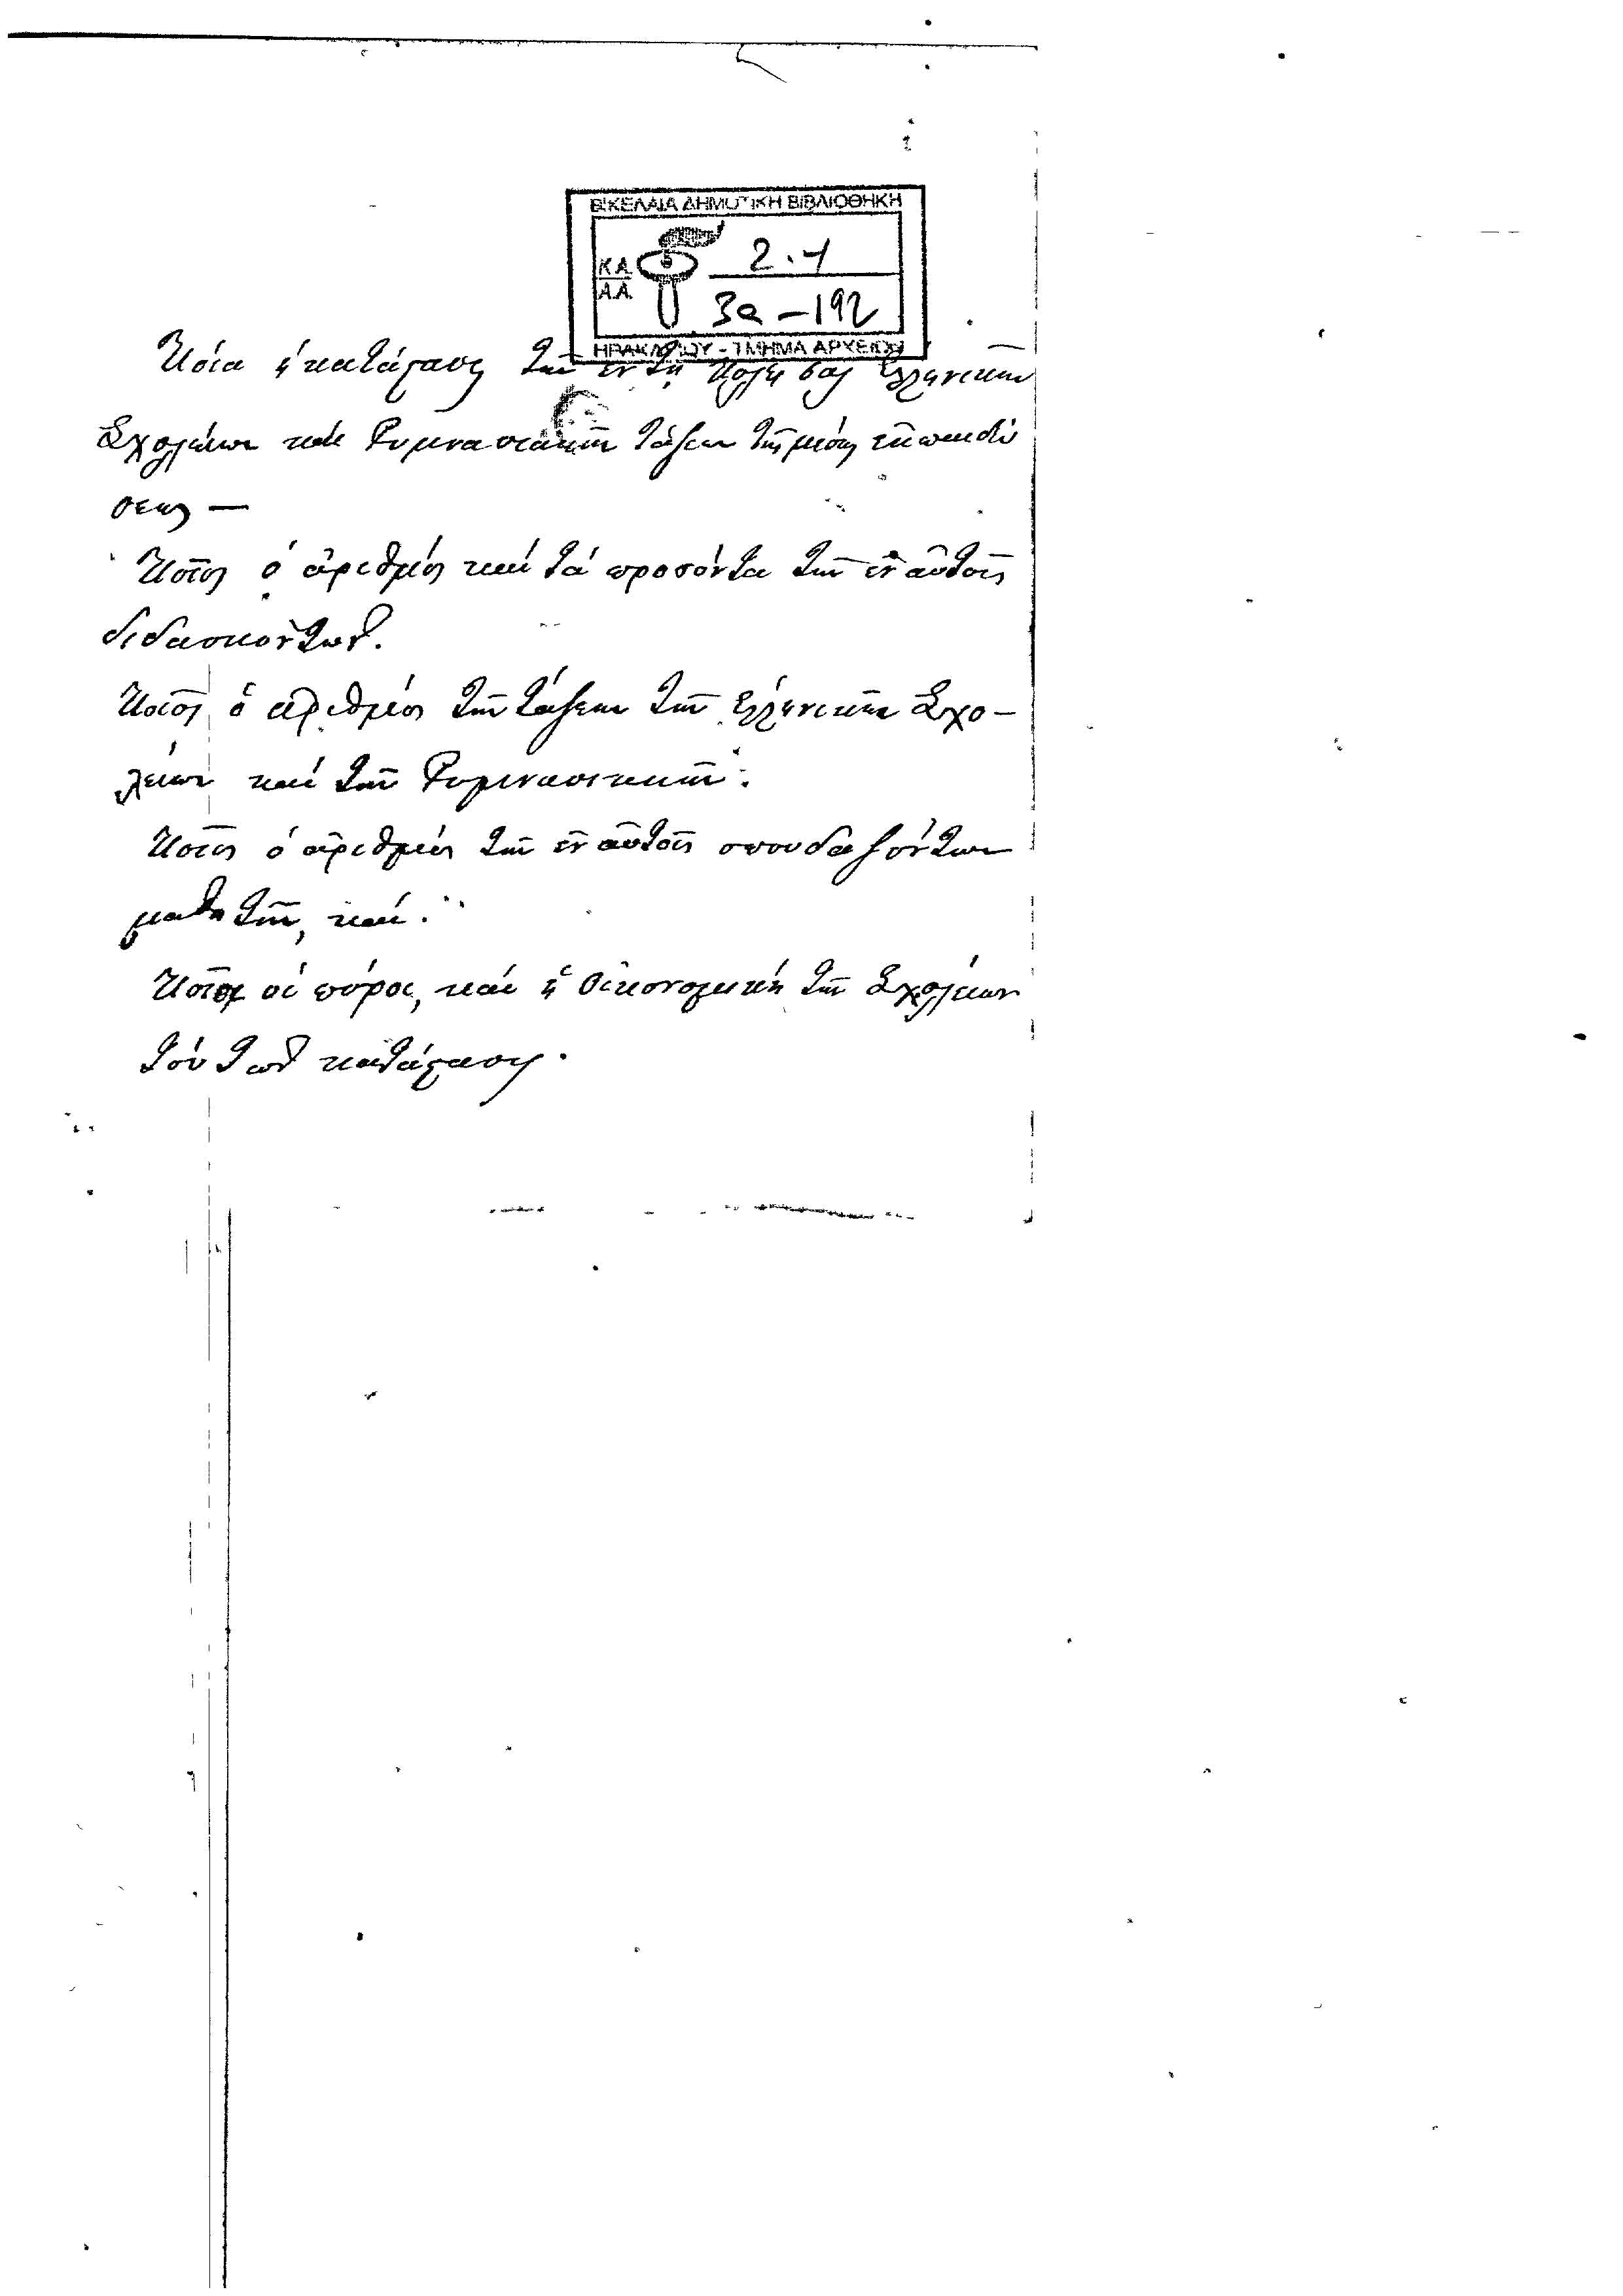 ΒΙΚΕΛΑΙΑ ΔΗΜΟΤΙΚΗ ΒΙΒΛΙΟΘΗΚΗ
Κ.Α. 2.4
Α.Α. 3α-192
ΗΡΑΚΛΕΙΟΥ - ΤΜΗΜΑ ΑΡΧΕΙΩΝ
Ποία ἡ κατάστασις τῶν ἐν τῇ πόλει σας Ἑλληνικῶν
Σχολείων καὶ Γυμνασιακῶν τάξεων τῆς μέσης ἐκπαιδεύ
σεως —
Ποῖος ὁ ἀριθμός καί τά προσόντα τῶν ἐν αὐτοῖς
διδασκόντων.
Ποῖος ὁ ἀριθμός τῶν τάξεων τῶν Ἑλληνικῶν Σχο-
λείων καί τῶν Γυμνασιακῶν.
Ποῖος ὁ ἀριθμός τῶν ἐν αὐτοῖς σπουδαζόντων
μαθητῶν, καί.
Ποῖοι οἱ πόροι, καί ἡ οἰκονομική τῶν Σχολείων
τούτων κατάστασις.